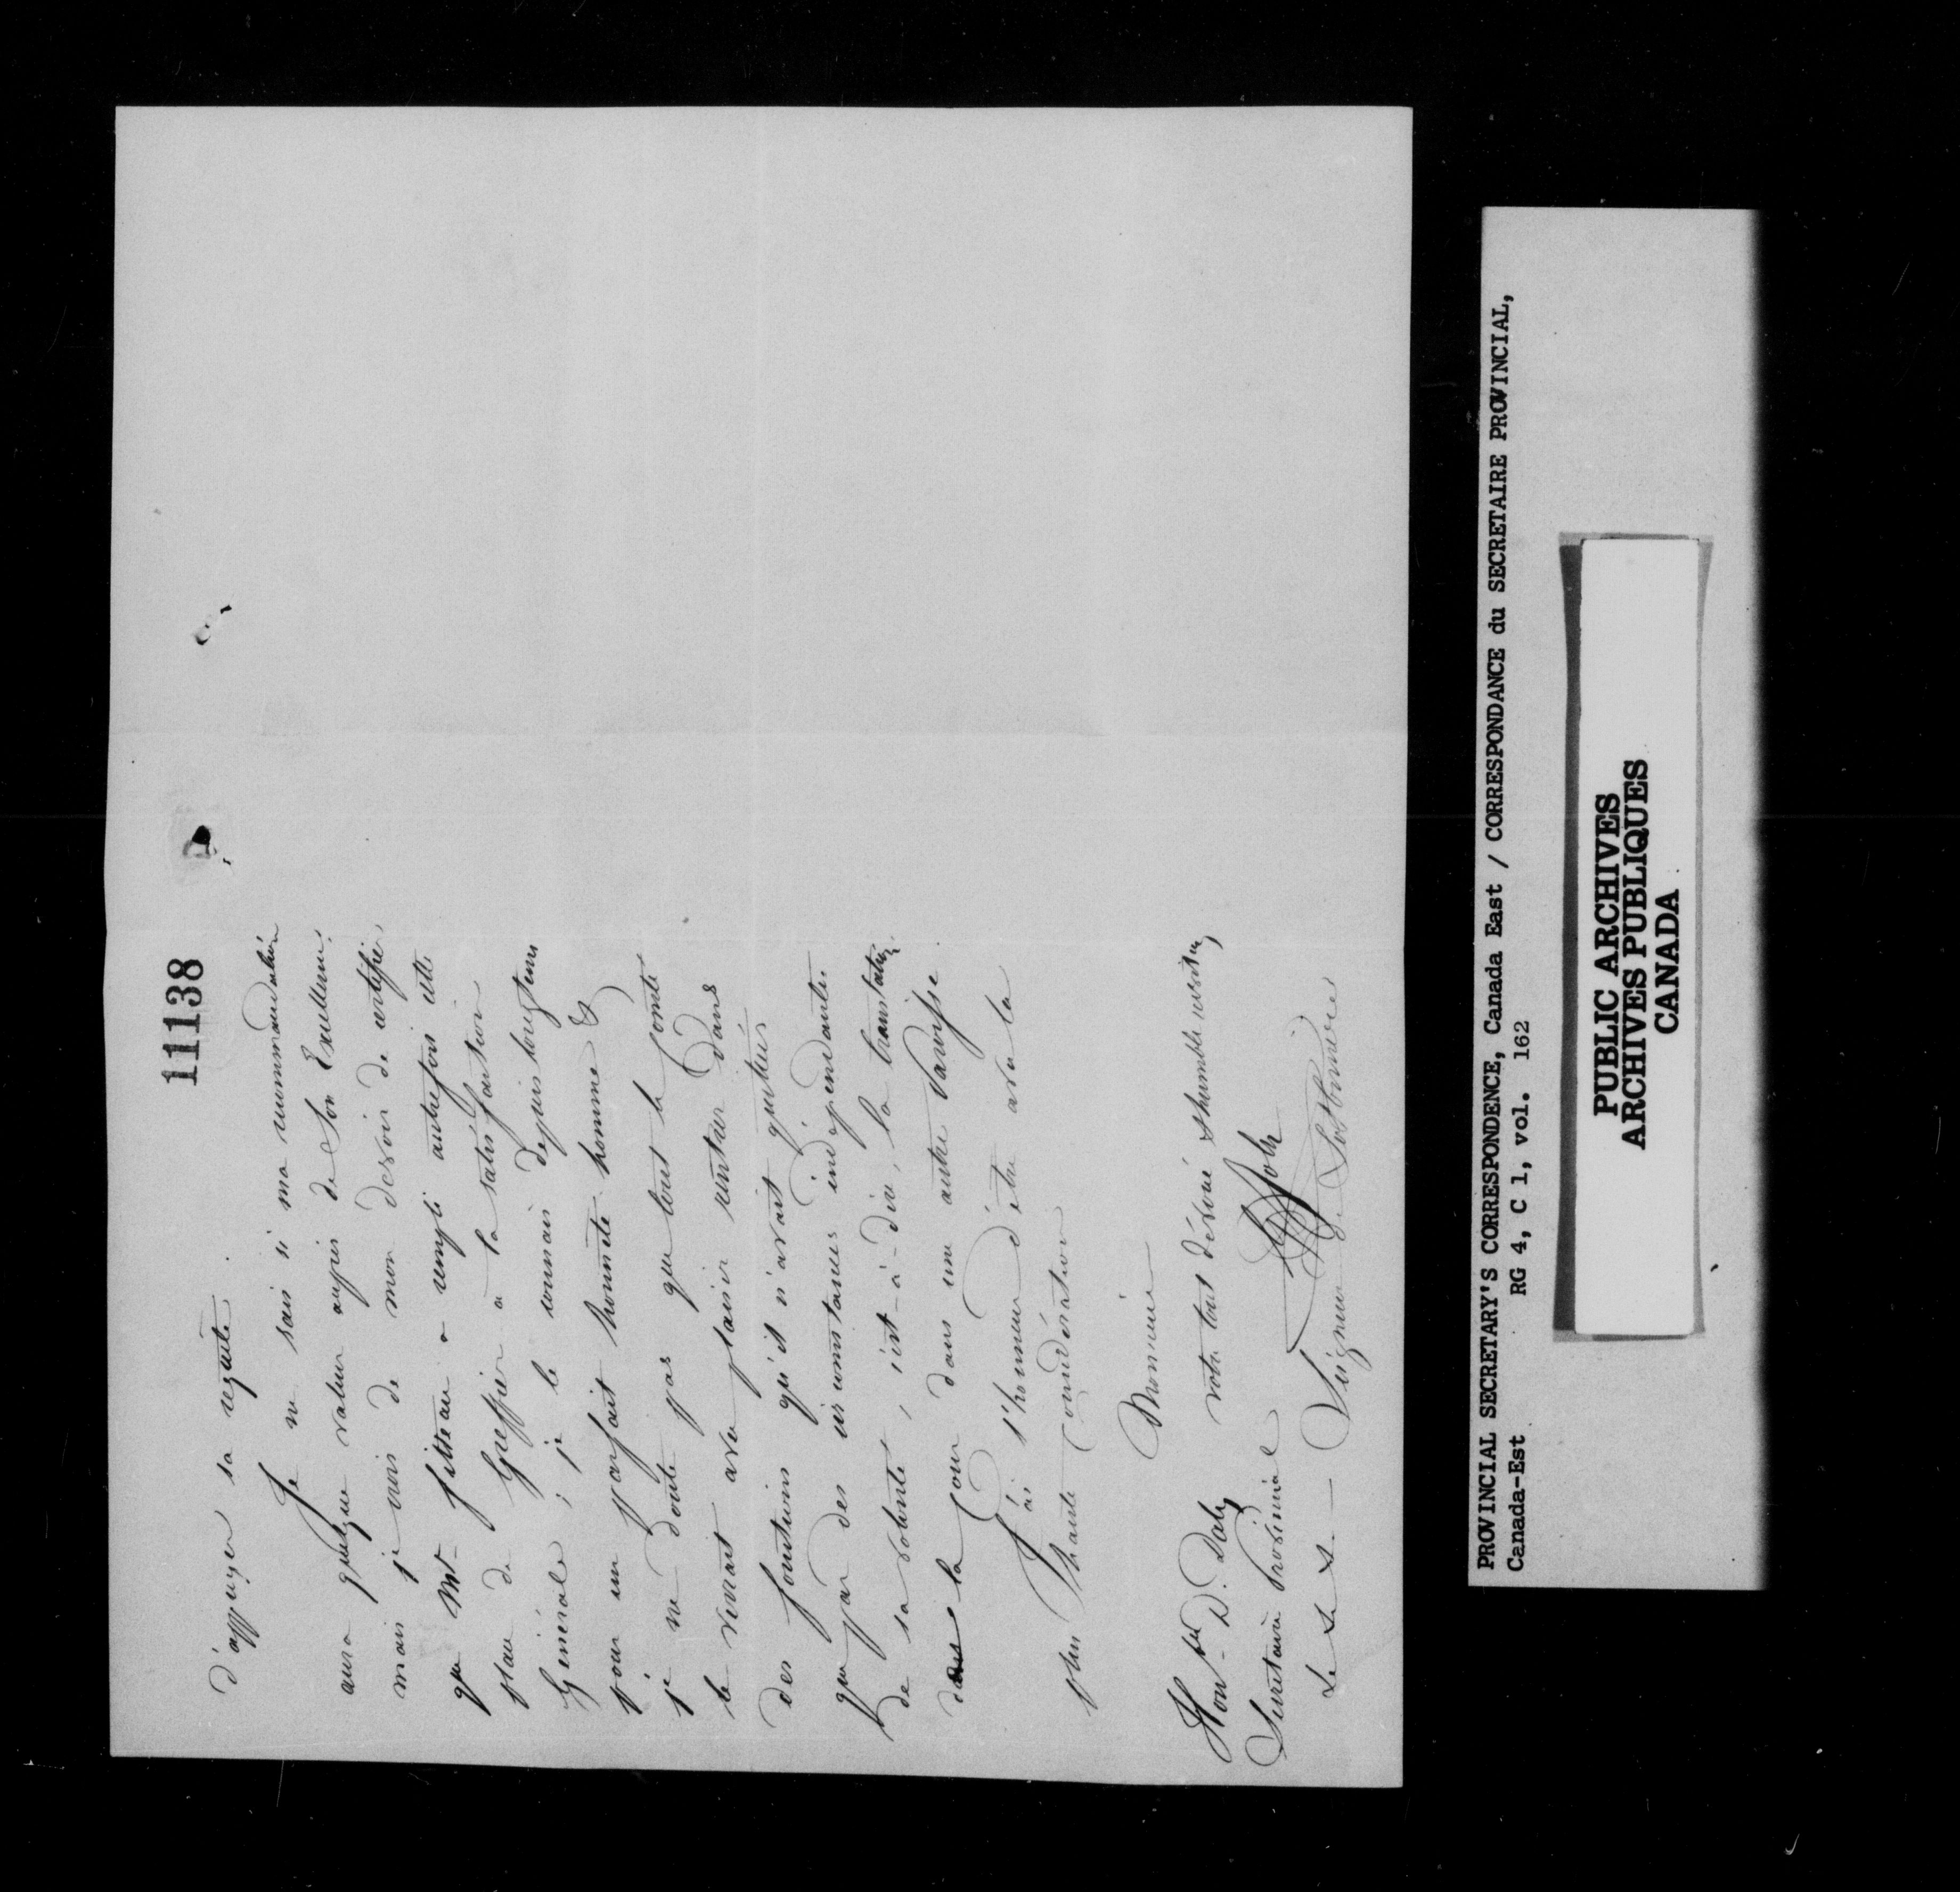 11138
d'appuyer sa requête.
Je ne sais si ma recommandation
aura quelque valeur aupès de Son Excellence,
mais je crois de mon devoir de certifier
que Mr. Filteau a rempli autrefois cette
place de Greffier à la satisfaction
Générale ; je le connais depuis longtems
pour un parfait honnête homme &
je ne doute pas que tout le Comté
le verrait avec plaisir rentrer dans
des fonctions qu'il n'avait quittées
que par des circonstances indépendantes
de sa volonté, c'est-à-dire, la translation
de la Cour dans une autre Paroisse.
J'ai l'honneur d'être avec la
plus haute considération
Monsieur
votre tout dévoué & humble serviteur,
Honble D. Daly
Secrétaire Provincial
Joly
&c &c &c — Seigneur de Lotbinière
PROVINCIAL SECRETARY'S CORRESPONDENCE, Canada East / CORRESPONDANCE du SECRETAIRE PROVINCIAL,
Canada-Est RG 4, C 1, vol. 162
PUBLIC ARCHIVES
ARCHIVES PUBLIQUES
CANADA